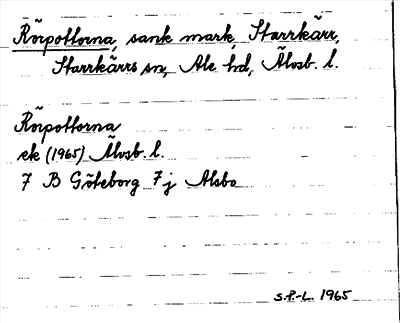 Rörpottorna, sank mark, Starrkärr,
Starrkärrs sn, Ale hd, Älvsb. l.
Rörpottorna
ek (1965) Älvsb. l.
7 B Göteborg 7 j Alsbo
S.P.-L. 1965